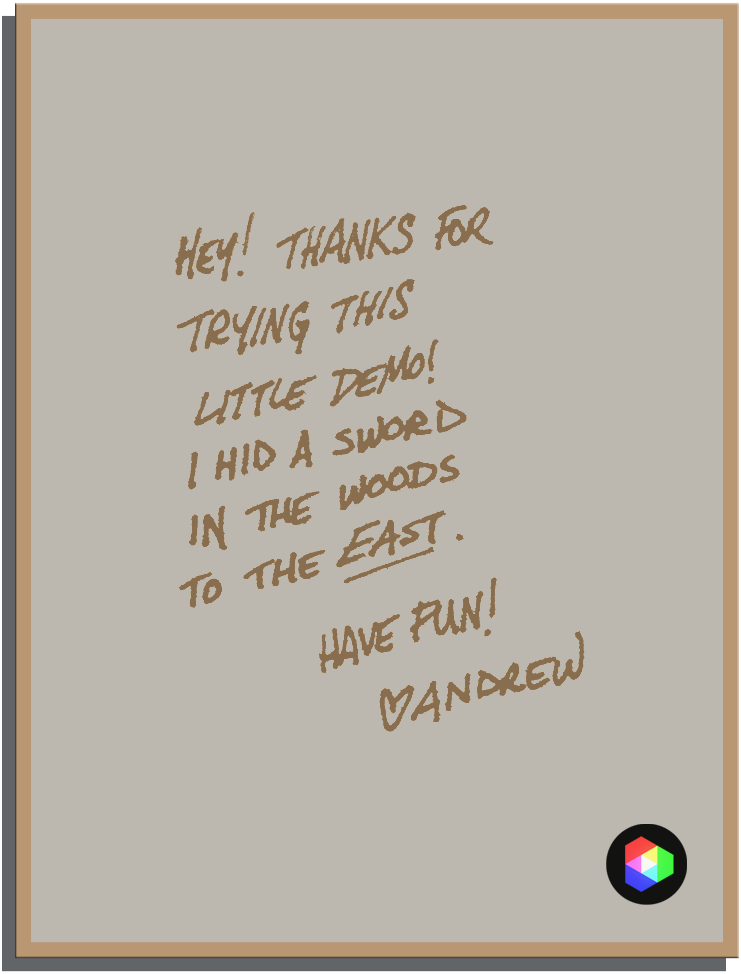 HEY! THANKS FOR
TRYING THIS
LITTLE DEMO!
I HID A SWORD
IN THE WOODS
TO THE EAST.
HAVE FUN!
♡ANDREW